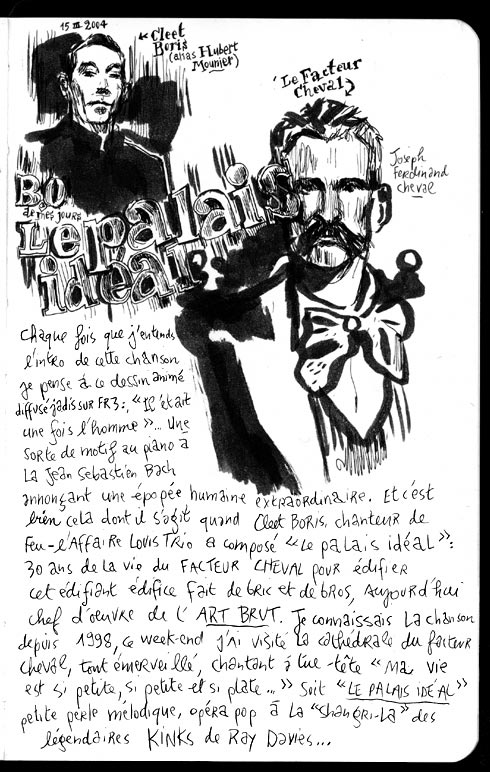 15 III 2004
Cleet
Boris
(alias Hubert
Mounier)
'Le Facteur
Cheval'
Joseph
Ferdinand
cheval
B.O
de mes jours
Le palais
idéal
Chaque fois que j'entends
l'intro de cette chanson
je pense à ce dessin animé
diffusé jadis sur FR3: "Il était
une fois l'homme"... Une
sorte de motif au piano à
La Jean Sebastien Bach
annonçant une épopée humaine extraordinaire. Et c'est
bien cela dont il s'agit quand Cleet Boris, chanteur de
feu-l'Affaire Louis Trio a composé "Le palais idéal":
30 ans de la vie du FACTEUR CHEVAL pour édifier
cet édifiant édifice fait de bric et de bros, aujourd'hui
chef d'oeuvre de l'ART BRUT. Je connaissais la chanson
depuis 1998, ce week-end j'ai visité la cathédrale du facteur
cheval, tout émerveillé, chantant à tue-tête "Ma vie
est si petite, si petite et si plate..." Soit "LE PALAIS IDÉAL"
petite perle mélodique, opéra pop à la "Shangri-La" des
légendaires KINKS de Ray Davies...